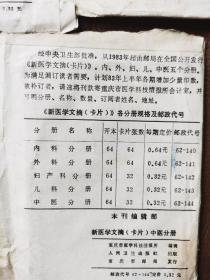 经中央卫生部批准,从1983年起由邮局在全国公开发行
《新医学文摘(卡片)》内、外、妇儿、中医五个分册,
为满足漏订读者需要,计划83年上半年各期增加少量印数,
欲补订者,请速将刊款寄重庆市医学科技情报所会计室,并
注明分册、名称、数量、订阅者姓名、地址。
《新医学文摘(卡片)》各分册规格及邮政代号
分册名称 开本 卡片张数 每期定价 邮政代号
内科分册 64 64 0.64元 62-140
外科分册 64 64 0.64元 62-141
妇产科分册 64 32 0.32元 62-142
儿科分册 64 32 0.32元 62-143
中医分册 64 32 0.32元 62-144
本刊编辑部
新医学文摘(卡片)中医分册
重庆市医学科技情报所 编辑
人民卫生出版社 出版
重庆市邮局 发行
邮政代号62-144 定价0.32元